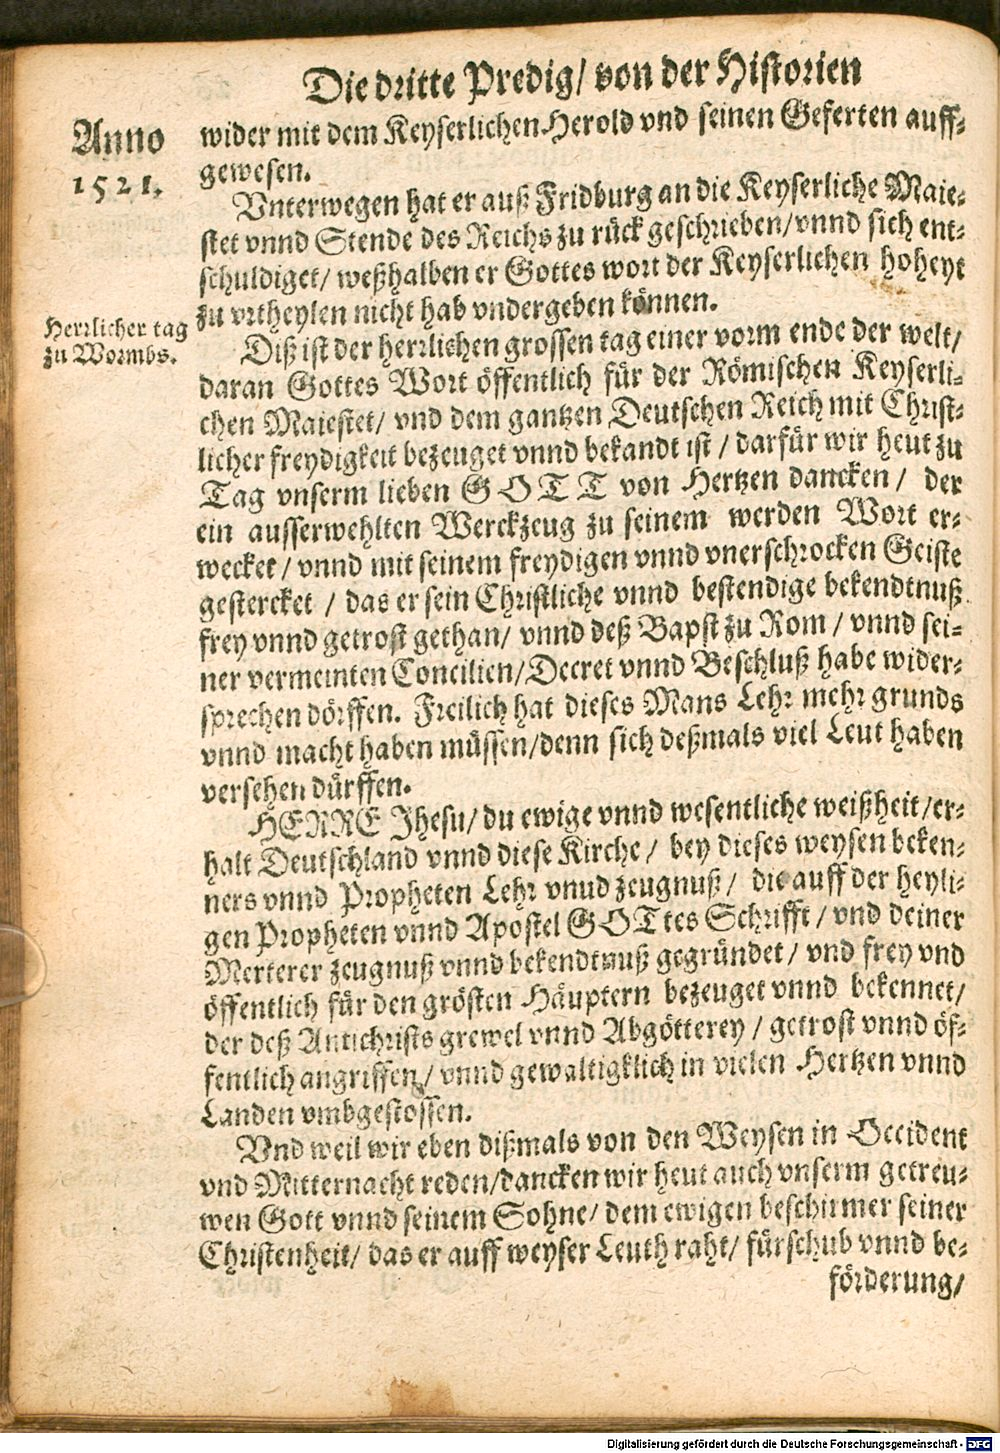 Die dritte Predig/ von der Historien
Anno
1521.
wider mit dem Keyserlichen Herold vnd seinen Geferten auff-
gewesen.
Vnterwegen hat er auß Fridburg an die Keyserliche Maie-
stet vnnd Stende des Reichs zu rück geschrieben/ vnnd sich ent-
schuldiget/ weßhalben er Gottes wort der Keyserlichen hoheyt
zu vrtheylen nicht hab vndergeben können.
Herrlicher tag
zu Wormbs.
Diß ist der herrlichen grossen tag einer vorm ende der welt/
daran Gottes Wort öffentlich für der Römischen Keyserli-
chen Maiestet/ vnd dem gantzen Deutschen Reich mit Christ-
licher freydigkeit bezeuget vnnd bekandt ist / darfür wir heut zu
Tag vnserm lieben GOTT von Hertzen dancken / der
ein ausserwehlten Werckzeug zu seinem werden Wort er-
wecket / vnnd mit seinem freydigen vnnd vnerschrocken Geiste
gestercket / das er sein Christliche vnnd bestendige bekendtnuß
frey vnnd getrost gethan/ vnnd deß Bapst zu Rom / vnnd sei-
ner vermeinten Concilien/ Decret vnnd Beschluß habe wider-
sprechen dörffen. Freilich hat dieses Mans Lehr mehr grunds
vnnd macht haben müssen/ denn sich deßmals viel Leut haben
versehen dürffen.
HERRE Jhesu/ du ewige vnnd wesentliche weißheit/ er-
halt Deutschland vnnd diese Kirche / bey dieses weysen beken-
ners vnnd Propheten Lehr vnud zeugnuß / die auff der heyli-
gen Propheten vnnd Apostel GOTtes Schrifft / vnd deiner
Merterer zeugnuß vnnd bekendtnuß gegründet / vnd frey vnd
öffentlich für den grösten Häuptern bezeuget vnnd bekennet/
der deß Antichrists grewel vnnd Abgötterey / getrost vnnd öf-
fentlich angriffen / vnnd gewaltigklich in vielen Hertzen vnnd
Landen vmbgestossen.
Vnd weil wir eben dißmals von den Weysen in Occident
vnd Mitternacht reden/ dancken wir heut auch vnserm getreu-
wen Gott vnnd seinem Sohne/ dem ewigen beschirmer seiner
Christenheit/ das er auff weyser Leuth raht/ fürschub vnnd be-
förderung/
Digitalisierung gefördert durch die Deutsche Forschungsgemeinschaft - DFG